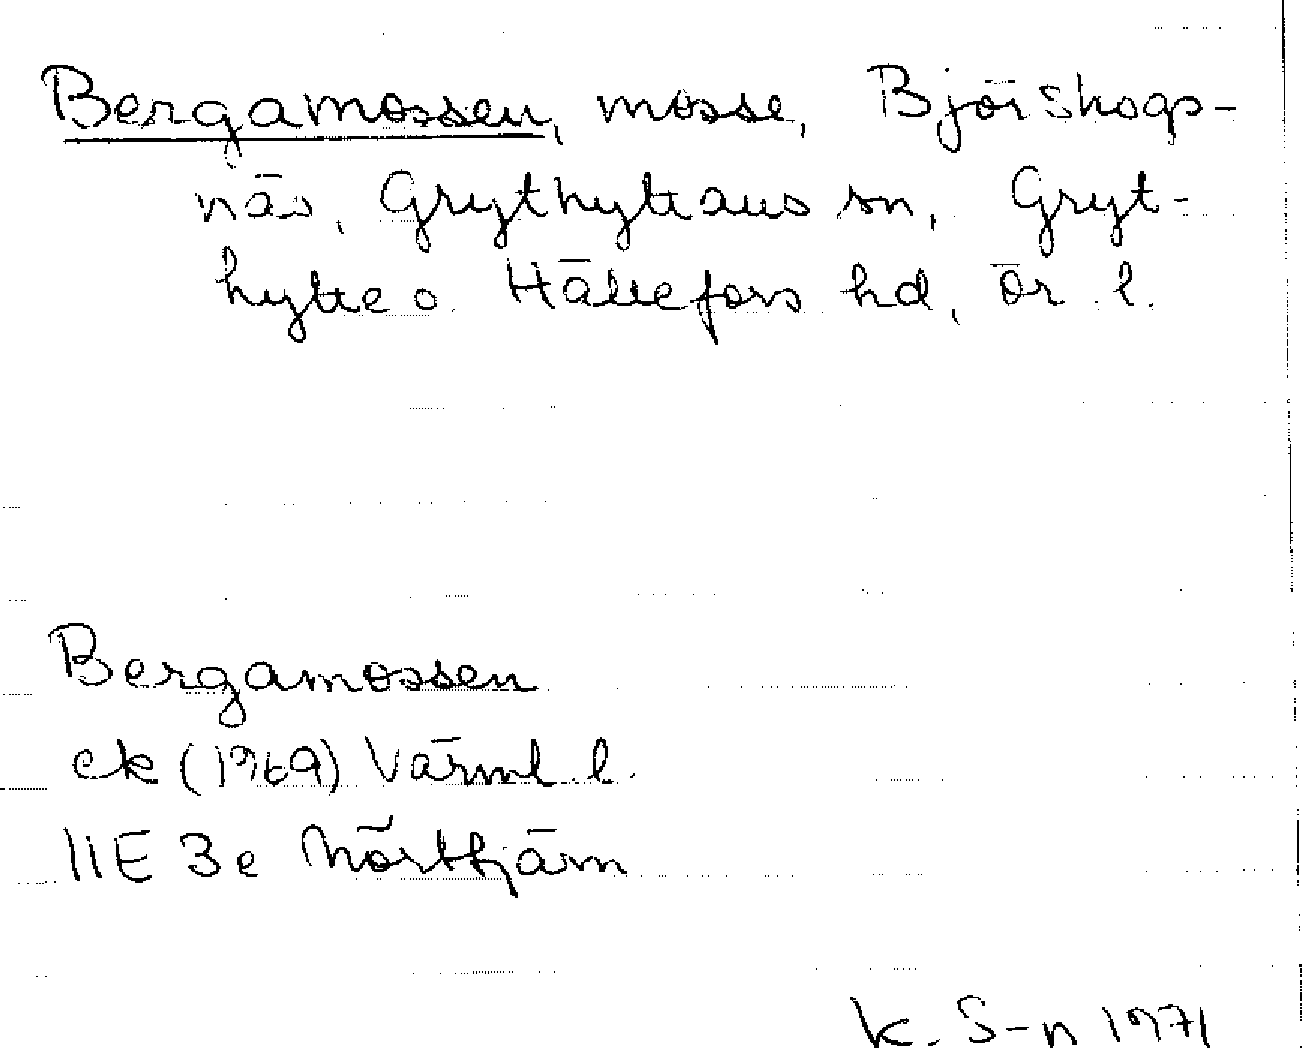 Bergamossen, mosse, Björskogs-
näs, Grythyttans sn, Gryt-
hytte o. Hällefors hd, Ör. l.
Bergamossen
ek (1969) Värml. l.
11E 3e Mörttjärn
K. S-n 1971